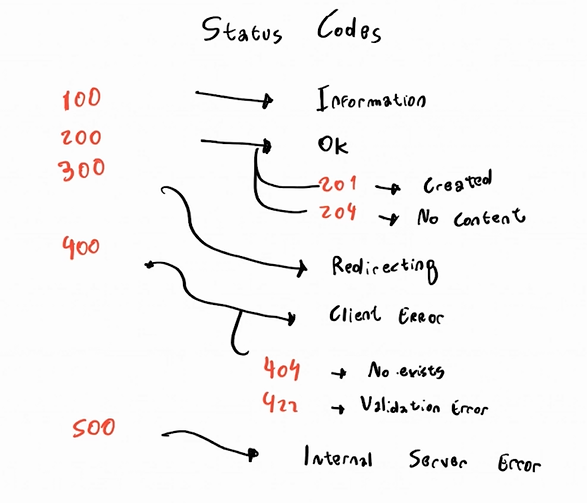 Status Codes
100 → Information
200 → Ok
201 → Created
300
204 → No Content
400
Redirecting
Client Error
404 → No exists
422 → Validation Error
500
Internal Server Error